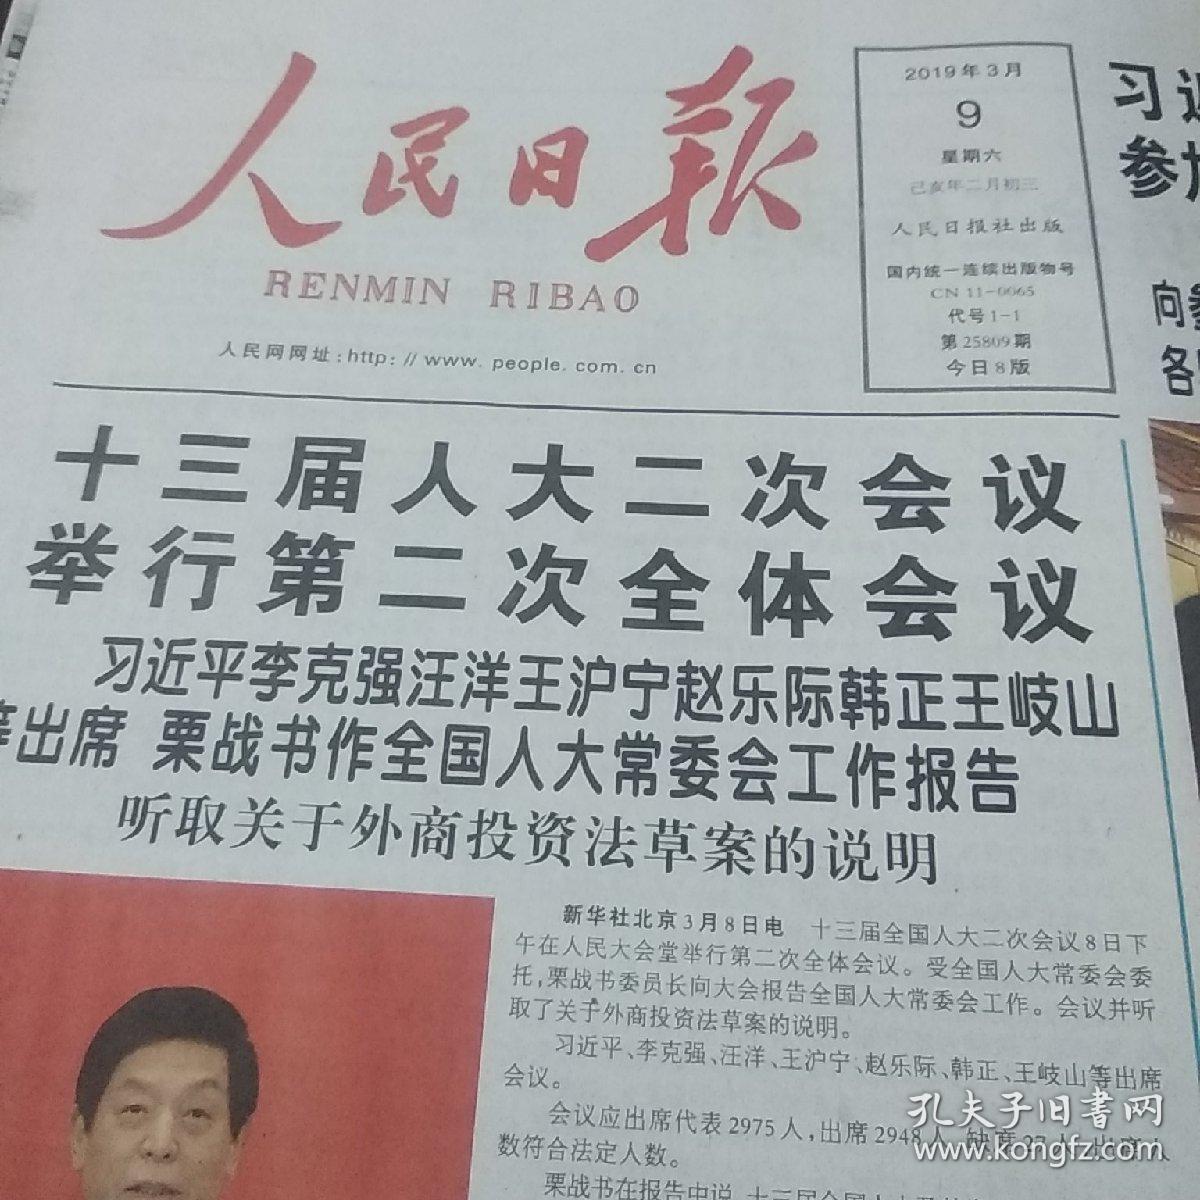 人民日报
RENMIN RIBAO
人民网网址:http://www.people.com.cn
2019年3月
9
星期六
己亥年二月初三
人民日报社出版
国内统一连续出版物号
CN 11-0065
代号1-1
第25809期
今日8版
习近
参加
向参
各
十三届人大二次会议
举行第二次全体会议
习近平李克强汪洋王沪宁赵乐际韩正王岐山
等出席 栗战书作全国人大常委会工作报告
听取关于外商投资法草案的说明
新华社北京3月8日电 十三届全国人大二次会议8日下
午在人民大会堂举行第二次全体会议。受全国人大常委会委
托,栗战书委员长向大会报告全国人大常委会工作。会议并听
取了关于外商投资法草案的说明。
习近平、李克强、汪洋、王沪宁、赵乐际、韩正、王岐山等出席
会议。
会议应出席代表2975人,出席2948人,缺席27人,出席人
数符合法定人数。
栗战书在报告中说,十三届全国人大
孔夫子旧书网
www.kongfz.com